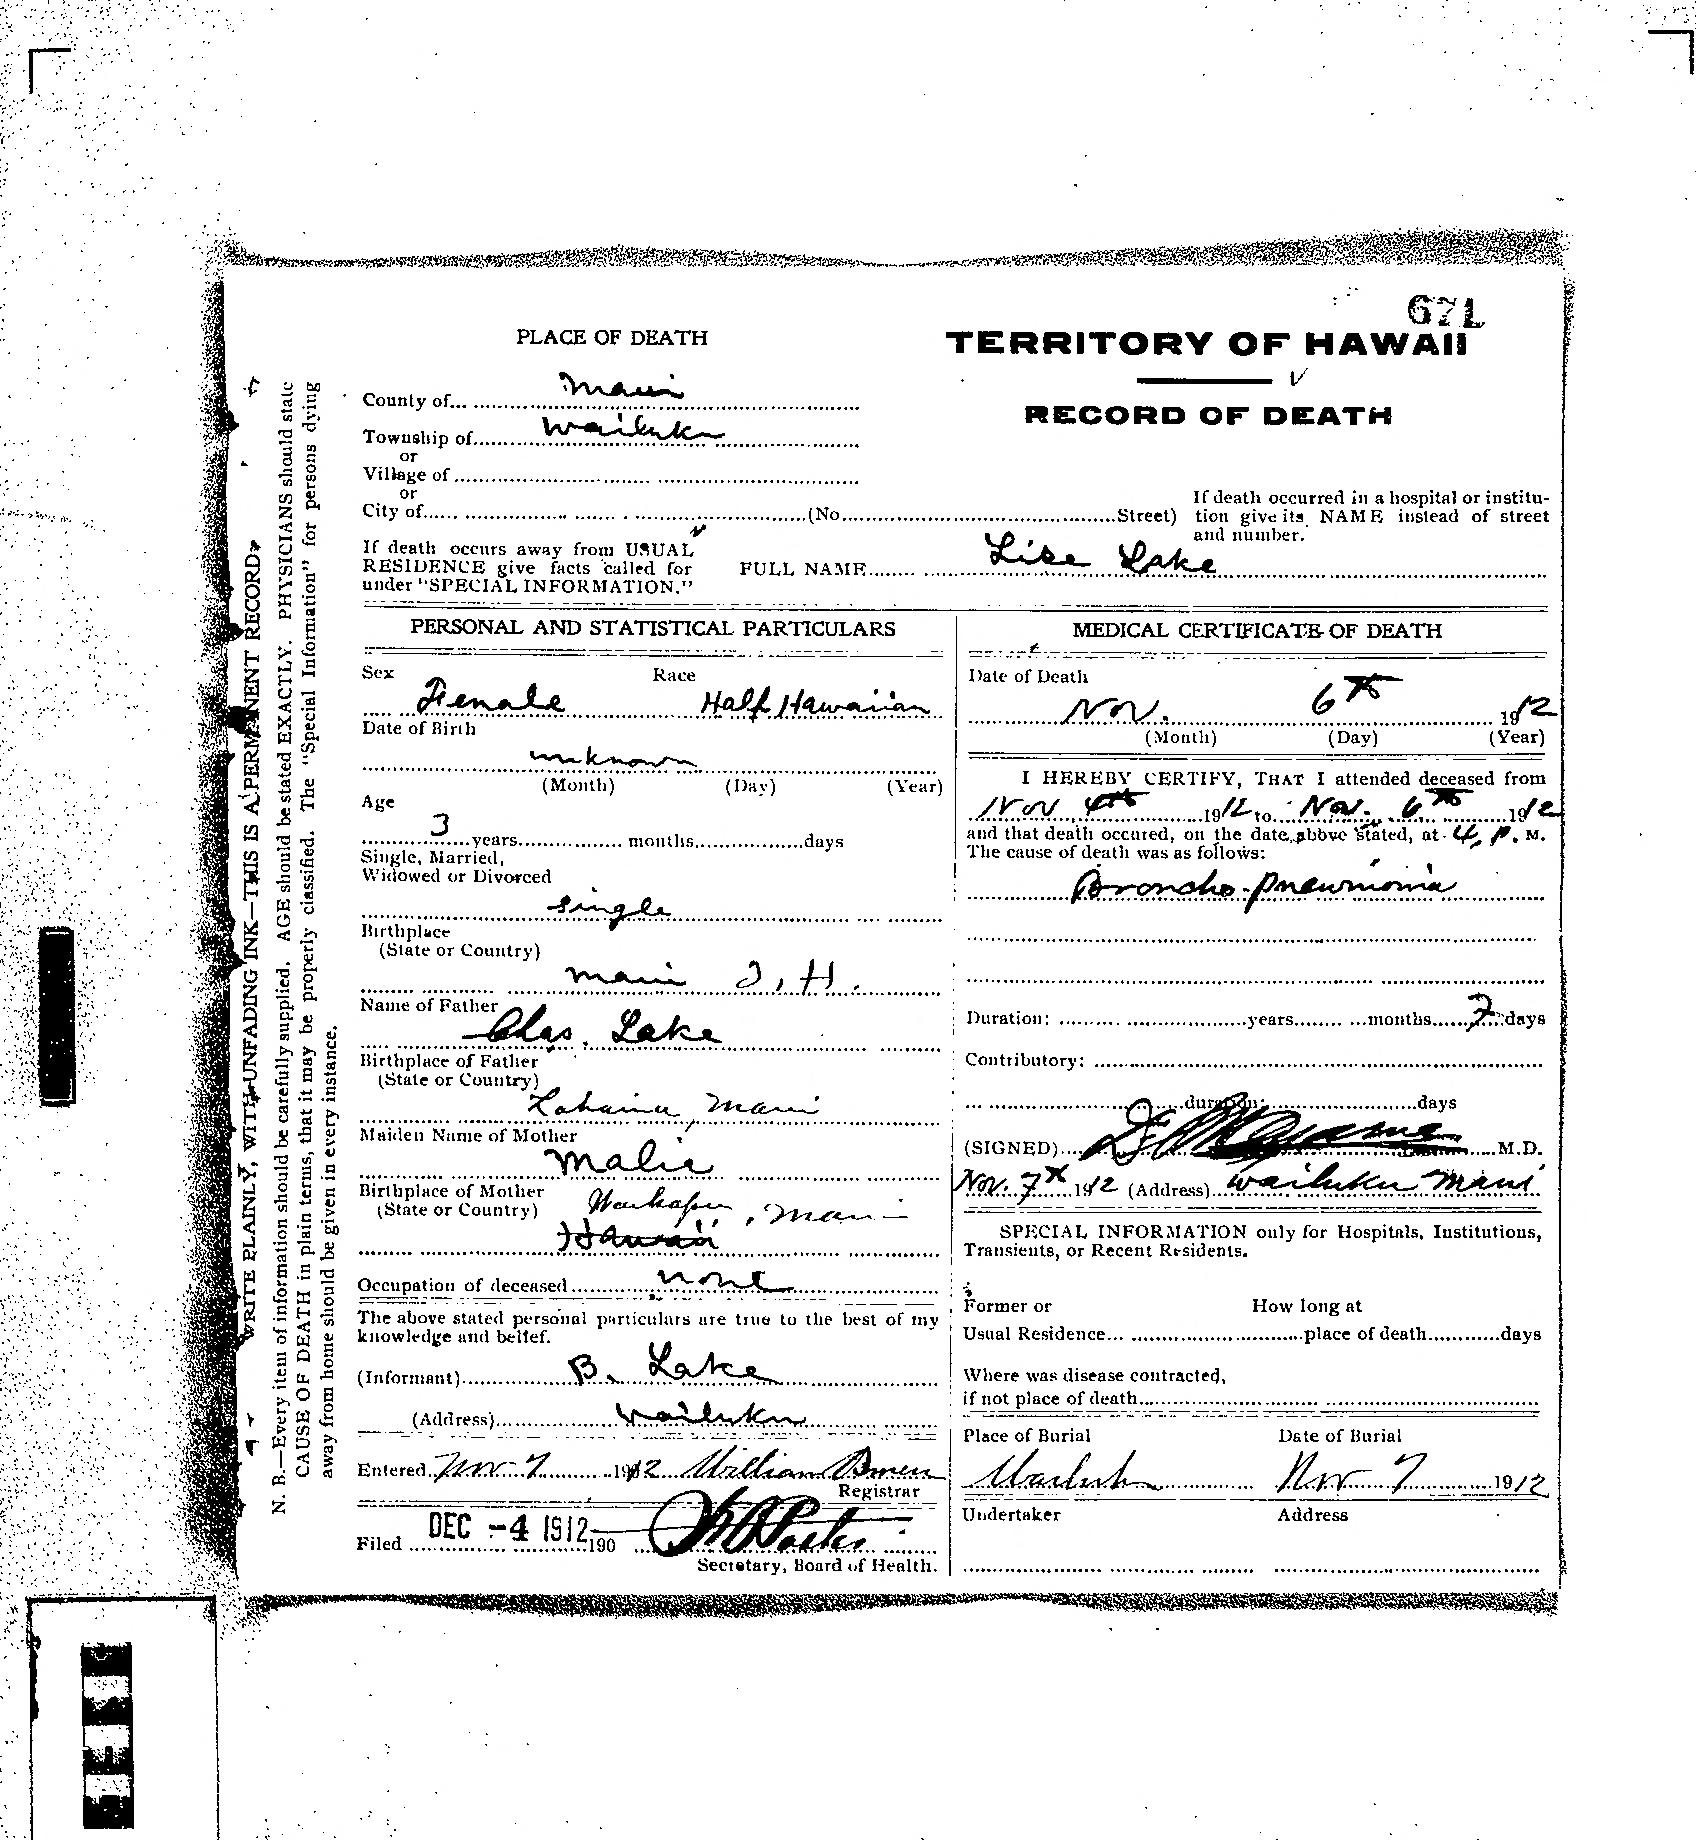 671
PLACE OF DEATH
TERRITORY OF HAWAII
RECORD OF DEATH
County of Maui
Township of Wailuku
or
Village of
or
City of (No Street)
If death occurred in a hospital or institu-
tion give its NAME instead of street
and number.
If death occurs away from USUAL
RESIDENCE give facts called for
under "SPECIAL INFORMATION."
FULL NAME Lise Lake
PERSONAL AND STATISTICAL PARTICULARS
Sex Race
Female Half Hawaiian
Date of Birth
unknown
(Month) (Day) (Year)
Age
3 years months days
Single, Married,
Widowed or Divorced
single
Birthplace
(State or Country)
Maui T. H.
Name of Father
Chas. Lake
Birthplace of Father
(State or Country)
Lahaina, Maui
Maiden Name of Mother
Malie
Birthplace of Mother
(State or Country) , Maui
Hawaii
Occupation of deceased none
The above stated personal particulars are true to the best of my
knowledge and belief.
(Informant) B. Lake
(Address) Wailuku
Entered Nov 7 1912 William
Registrar
Filed DEC -4 1912 190
Secretary, Board of Health.
MEDICAL CERTIFICATE OF DEATH
Date of Death
Nov. 6th 1912
(Month) (Day) (Year)
I HEREBY CERTIFY, THAT I attended deceased from
Nov 4th 1912 to Nov. 6th 1912
and that death occured, on the date above stated, at 4, P. M.
The cause of death was as follows:
Broncho-pneumonia
Duration: years months 7 days
Contributory:
duration: days
(SIGNED) M.D.
Nov. 7th 1912 (Address) Wailuku Maui
SPECIAL INFORMATION only for Hospitals, Institutions,
Transients, or Recent Residents.
Former or How long at
Usual Residence place of death days
Where was disease contracted,
if not place of death
Place of Burial Date of Burial
Wailuku Nov 7 1912
Undertaker Address
WRITE PLAINLY, WITH UNFADING INK—THIS IS A PERMANENT RECORD.
N. B.—Every item of information should be carefully supplied. AGE should be stated EXACTLY. PHYSICIANS should state
CAUSE OF DEATH in plain terms, that it may be properly classified. The "Special Information" for persons dying
away from home should be given in every instance.